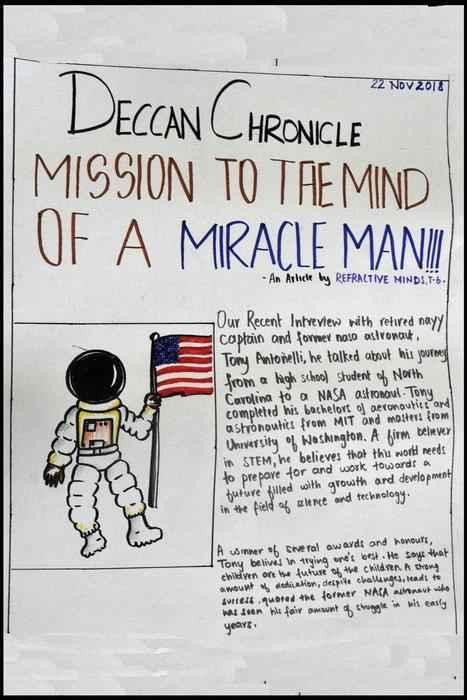 22 NOV 2018
DECCAN CHRONICLE
MISSION TO THE MIND
OF A MIRACLE MAN!!!
- An Article by REFRACTIVE MINDS, T-6.
Our Recent Intrview with retired navy
captain and former nasa astronaut,
Tony Antonelli, he talked about his journey
from a high school student of North
Carolina to a NASA astronaut. Tony
completed his bachelors of aeronautics and
astronautics from MIT and masters from
University of Washington. A firm believer
in STEM, he believes that this world needs
to prepare for and work towards a
future filled with growth and development
in the field of science and technology.
A winner of several awards and honours,
Tony belives in trying one's best. He says that
children are the future of the children. A strong
amount of dedication, despite challenges, leads to
success. quoted the former NASA astronaut who
has seen his fair amount of struggle in his early
years.